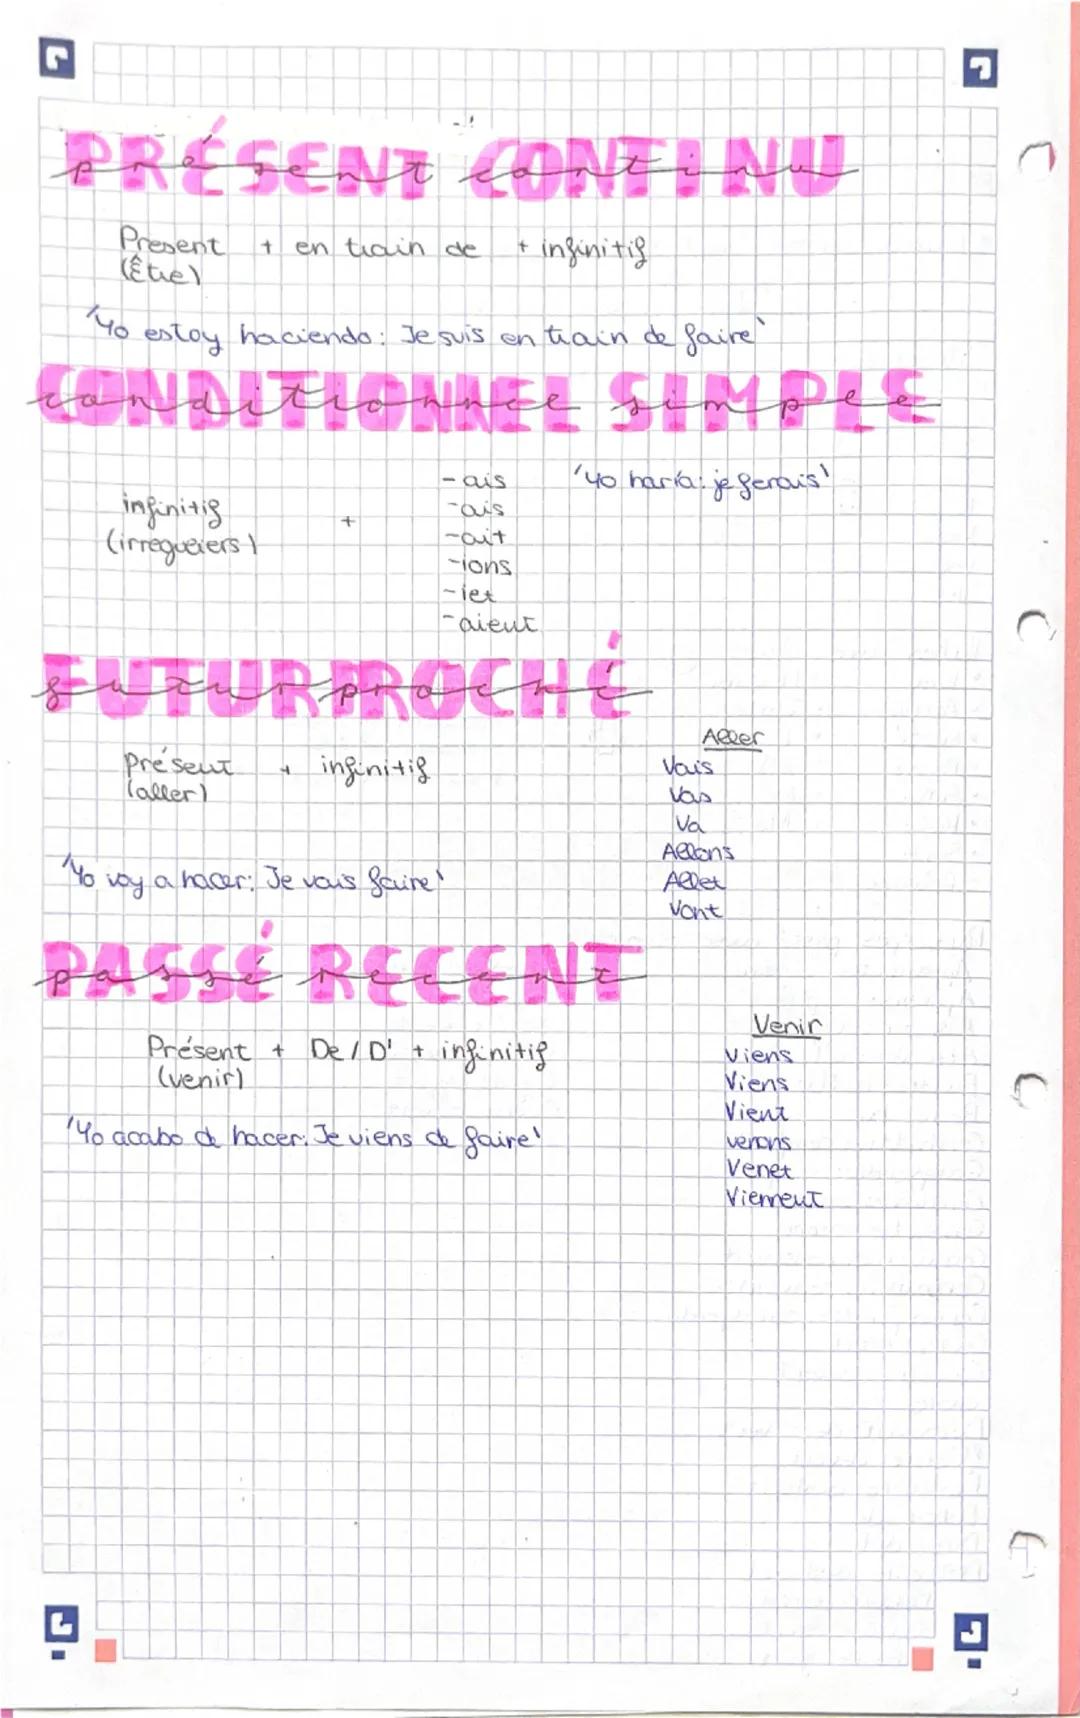 PRÉSENT CONTINU
présent continu
Present + en train de + infinitif
(Être)
'Yo estoy haciendo: Je suis en train de faire'
CONDITIONNEL SIMPLE
conditionnel simple
-ais 'Yo haría: je ferais'
infinitif + -ais
(irreguliers) -ait
-ions
-iez
-aient
FUTUR PROCHÉ
futur proché
Aller
Présent + infinitif Vais
(aller) Vas
Va
Allons
'Yo voy a hacer: Je vais faire' Allez
Vont
PASSÉ RECENT
passé recent
Venir
Présent + De / D' + infinitif Viens
(venir) Viens
Vient
'Yo acabo de hacer: Je viens de faire' venons
Venez
Viennent